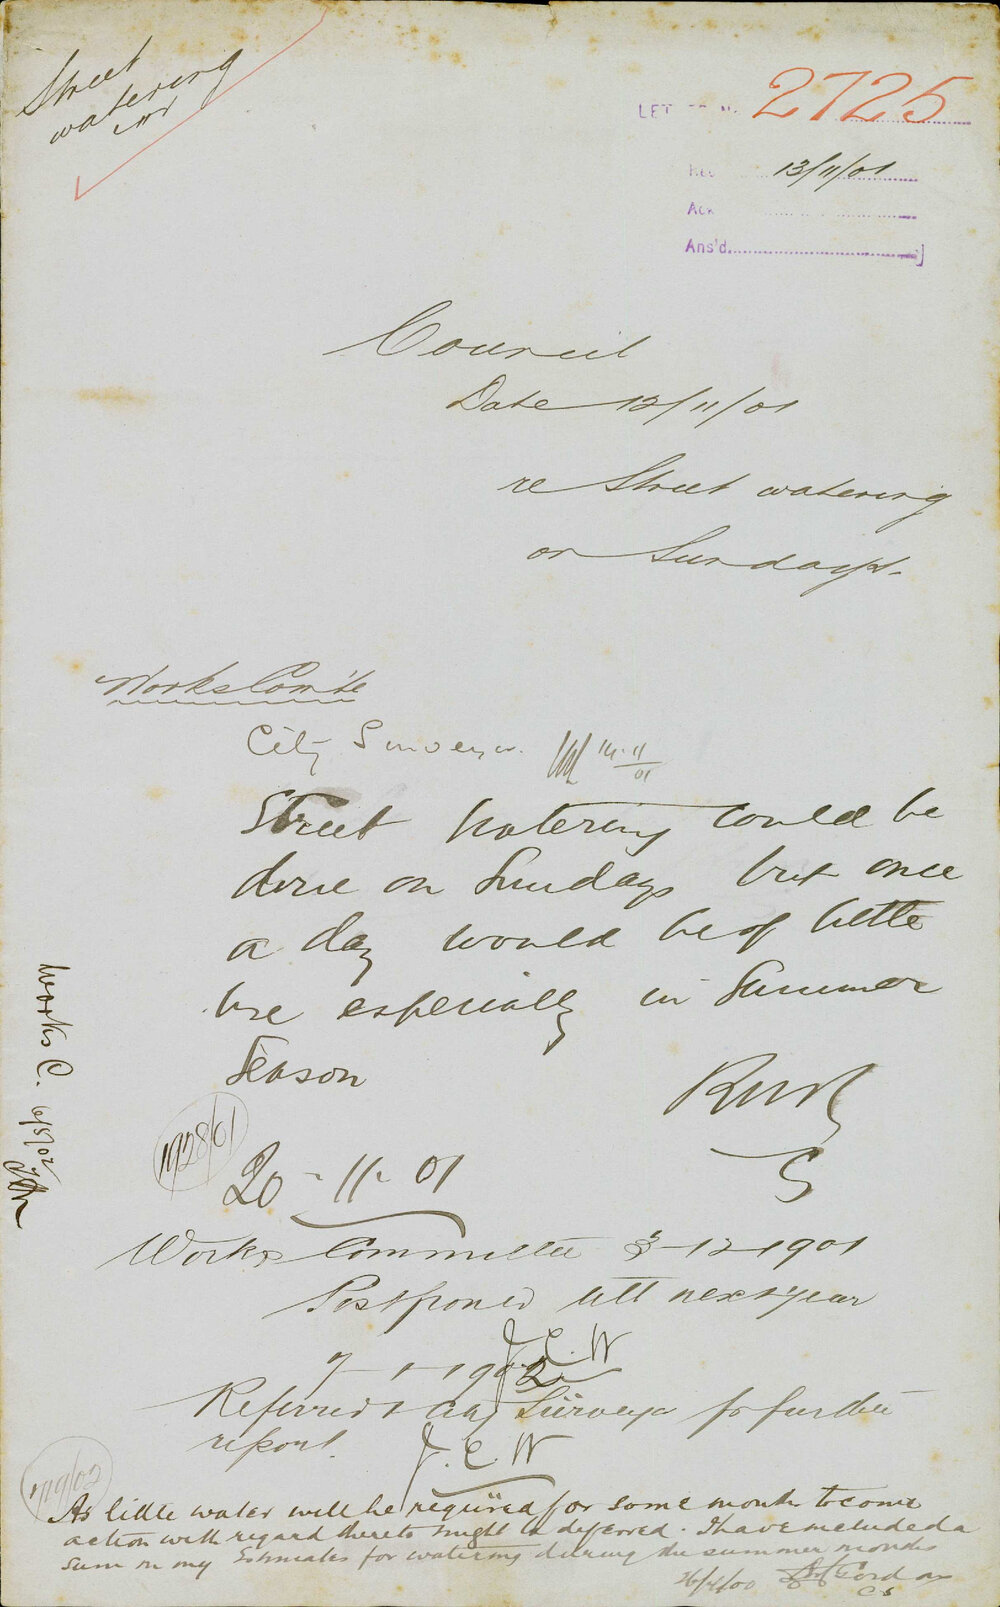 Street
watering
2725
13/11/01
Ack
Ans'd
Council
Date 12/11/01
re Street watering
on Sundays.
Works Com'te
City Surveyor. 14.11/01
Street Watering could be
done on Sundays but once
a day would be of little
use especially in Summer
Season
20-11-01
1928/01
Works C. 6/5/02
Works Committee 3-12-1901
Postponed till next year
J.C.W
7-1-1902
Referred to City Surveyor for further
report.
J.C.W
1719/02
As little water will be required for some months to come
action with regard thereto might be deferred. I have included a
sum in my Estimates for watering during the summer months
Gordon
CS